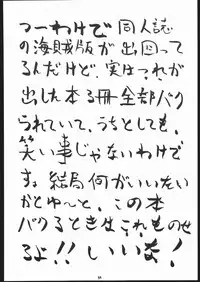 つーわけで同人誌
の海賊版が出回って
るんだけど、実はこれが
出した本3冊全部パク
られていて、うちとしても、
笑い事じゃないわけで
す。結局何がいいたい
かとゆーと、この本
パクるときはこれものせ
るよ!!いいな!